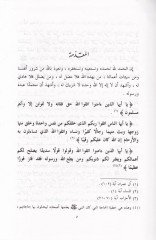 المقدمة
إنا الحمد لله نحمده، ونستعينه ونستغفره، ونعوذ بالله من شرور أنفسنا
ومن سيئات أعمالنا، من يهده الله فلا مضل له، ومن يضلل فلا هادي
له، وأشهد أن لا إله إلا الله وحده لا شريك له، وأشهد أن محمداً عبده
ورسوله.
﴿ يا أيها الذين آمنوا اتقوا الله حق تقاته ولا تموتن إلا وأنتم
مسلمون ﴾
﴿ يا أيها الناس اتقوا ربكم الذي خلقكم من نفس واحدة وخلق
منها زوجها وبث منهما رجالاً كثيراً ونساء، واتقوا الله الذي تساءلون به
والأرحام إن الله كان عليكم رقيباً ﴾
﴿ يا أيها الذين آمنوا اتقوا الله وقولوا قولاً سديداً يصلح لكم
أعمالكم ويغفر لكم ذنوبكم ومن يطع الله ورسوله فقد فاز فوزاً
عظيماً ﴾